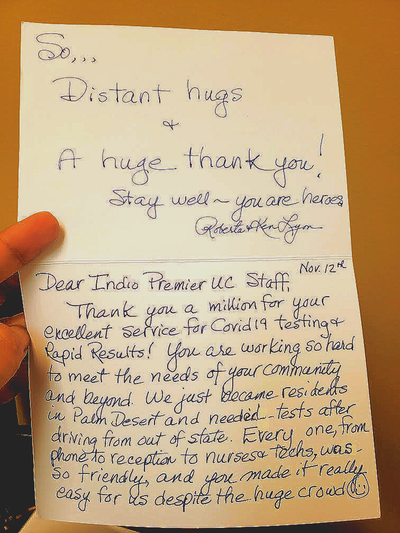 So,,,
Distant hugs
&
A huge thank you!
Stay well ~ you are heroes
Roberta & Ken Lyon
Nov. 12th
Dear Indio Premier UC Staff,
Thank you a million for your
excellent service for Covid 19 testing &
Rapid Results! You are working so hard
to meet the needs of your community
and beyond. We just became residents
in Palm Desert and needed tests after
driving from out of state. Every one, from
phone to reception to nurses & techs, was
so friendly, and you made it really
easy for us despite the huge crowd